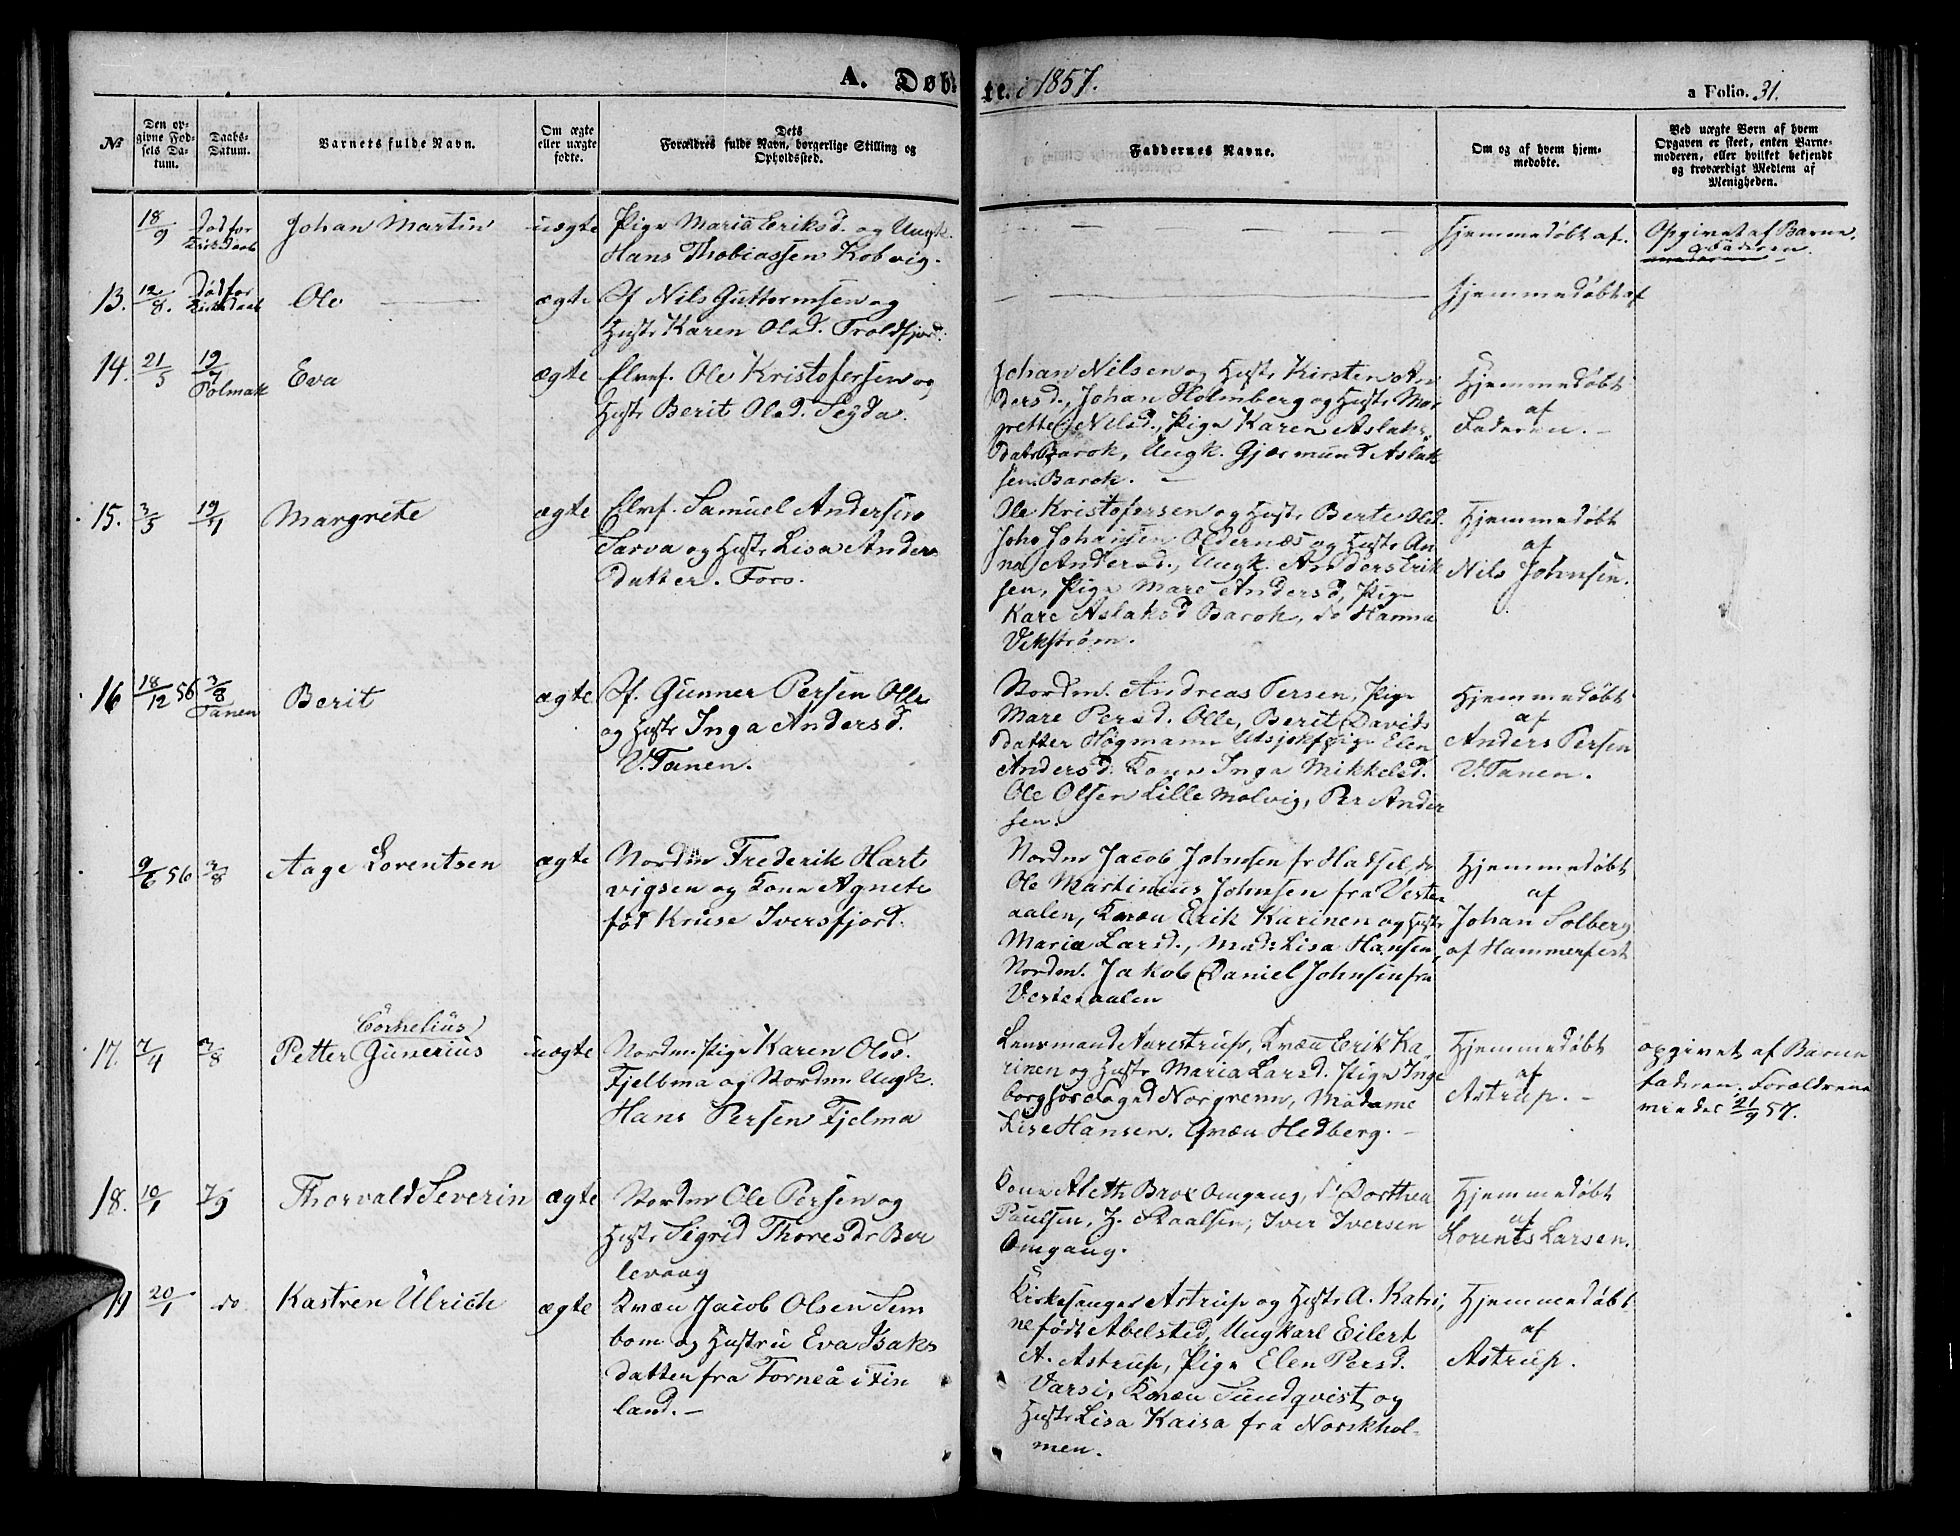 A. Døbte i 1857.
a Folio. 31.
No
Den opgivne Fødsels Datum.
Daabs-Datum.
Barnets fulde Navn.
Om ægte eller uægte fødte.
Dets Forældres fulde Navn, borgerlige Stilling og Opholdssted.
Faddernes Navne.
Om og af hvem hjemmedøbte.
Ved uægte Børn af hvem Opgaven er skeet, enten Barnemoderen, eller hvilket bekjendt og troværdigt Medlem af Menigheden.
18/9
Død før
Kirkdaab
Johan Martin
uægte
Pige Maria Eriksd. og Ungk.
Hans Thobiassen Kobvig.
Hjemmedøbt af.
Opgivet af Barne
faderen.
13.
12/8.
Død før
Kirkdaab
Ole
ægte
Sf Nils Guttormsen og
Hustr Karen Olsd. Troldfjord.
Hjemmedøbt af
14.
21/5
19/7
Polmak
Eva
ægte
Elvef. Ole Kristofersen og
Hustr Berit Olsd. Segda.
Johan Nilsen og Hustr Kirsten An
dersd., Johan Holmberg og Hustr Mar
grette Nilsd., Pige Karen Aslaks
datr Barok, Ungk. Gjermund Aslak
sen Barok.
Hjemmedøbt
af
Faderen.
15.
3/5
19/7
Margrete
ægte
Elvef. Samuel Andersen
Sarva og Hustr Lisa Anders
datter. Fors.
Ole Kristofersen og Hustr Berte Olsd.
John Johansen Oldernæs og Hustr An
na Andersd., Ungk. Anders Erik
sen, Pige Mare Andersd, Pige
Kare Aslaksd Barok, do Hanna
Vekstrøm.
Hjemmedøbt
af
Nils Johnsen.
16
18/12 56
3/8
Tanen
Berit
ægte
Sf. Gunner Persen Olle
og Hustr Inga Andersd.
V. Tanen.
Nordm. Andreas Persen, Pige
Mare Persd. Olle, Berit Davids
datter Høgmann Utsjok, Pige Elen
Andersd. Kone Inga Mikkelsd.
Ole Olsen Lille Molvig, Per Ander
sen.
Hjemmedøbt
af
Anders Persen
V. Tanen.
9/6 56
3/8
Aage Lorentsen
ægte
Nordm Frederik Hart
vigsen og Kone Agnete
fød Kruse Iversfjord.
Nordm Jacob Johnsen fr Hadsel, do
Ole Martinius Johnsen fra Veste
aalen, Kvæn Erik Karinen og Hustr
Maria Larsd., Mad. Lisa Hansen,
Nordm. Jakob Daniel Johnsen fra
Vesteraalen
Hjemmedøbt
af
Johan Solberg
af Hammerfest
17.
7/4
3/8
Cornelius
Petter Gunerius
uægte
Nordm. Pige Karen Olsd.
Fjelbma og Nordm. Ungk.
Hans Persen Fjelma
Lensmand Aarestrup, Kvæn Erik Ka
rinen og Hustr Maria Larsd. Pige Inge
borg Norgrenn, Madame
Lise Hansen. Qvæn Hedberg.
Hjemmedøbt
af
Astrup.
opgivet af Barne
faderen. Forældrene
viedes 21/9 57.
18.
10/1
7/9
Thorvald Severin
ægte
Nordm Ole Persen og
Hustr Sigrid Thoresdr Ber
levaag
Kone Aleth Omgang, do Dorthea
Paulsen, Iver Iversen
Omgang.
Hjemmedøbt
af
Lorents Larsen.
19
20/1
do
Kastren Ulrich
ægte
Kvæn Jacob Olsen Sem
bom og Hustru Eva Isaks
datter fra Torneå i Fin
land.
Kirkesanger Astrup og Hustr A. Katri,
ne født Abelsted, Ungkarl Eilert
A. Astrup, Pige Elen Persd.
Varsi, Kvæn Sundqvist og
Hustr Lisa Kaisa fra Norskhol
men.
Hjemmedøbt
af
Astrup.